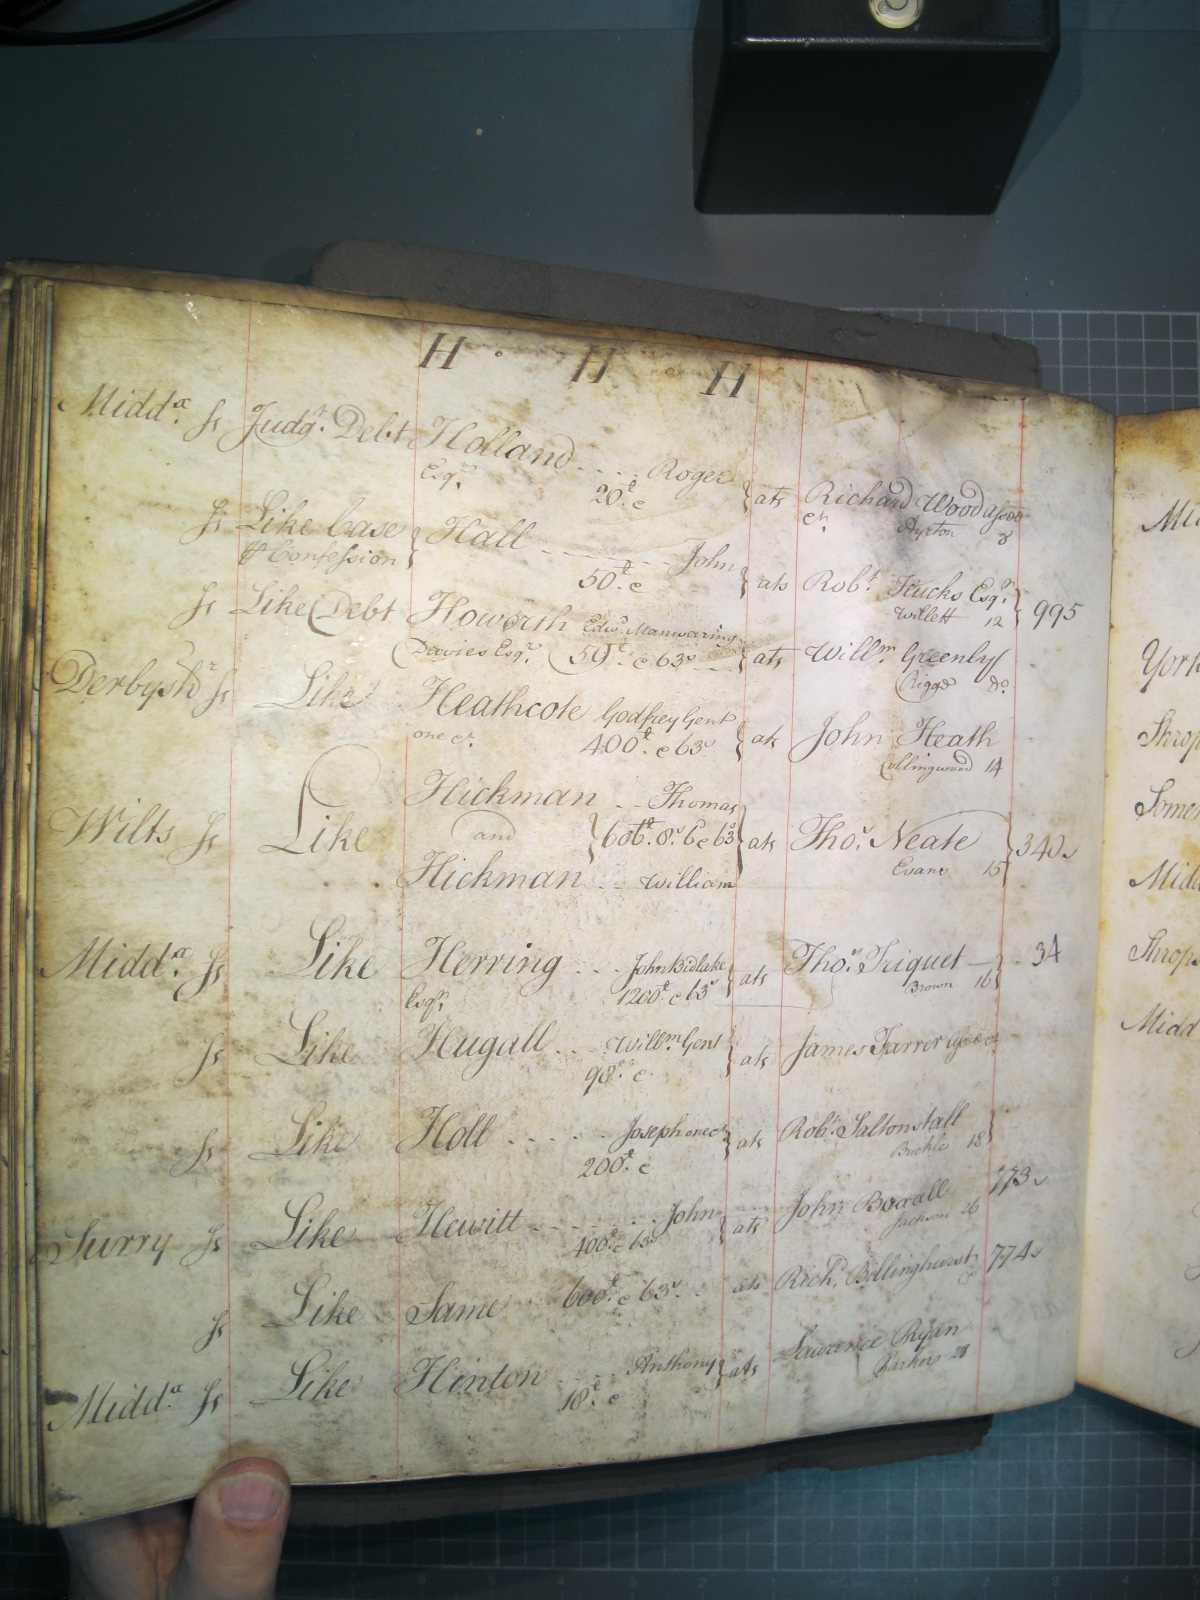 H . H . H
Midd.ˣ fs Judg.ᵗ Debt Holland .... Roger
Esq.ʳ 20.ᵗ c } ats Richard Wood
Ayrton 8
fs Like Case Hall ---- John
₱ Confession } 50.ᵗ c } ats Rob.ᵗ Esq.ʳ } 995
Willett 12
fs Like Debt Howorth Edw.ᵈ Manwaring
(Davies Esq.ʳ (59.ᵗ c 63ˢ } ats Will.ᵐ Greenly
Riggs D.º
Derbysh.ʳ fs Like Heathcote Godfrey Gent
one &c. 400.ᵗ c 63ˢ } ats John Heath
Collingwood 14
Hickman .. Thomas
Wilts fs Like and } 606.ᵗ 8.ˢ 6 c 63ˢ } ats Tho.ˢ Neate } 340
Evans 15
Hickman .. William
Midd.ˣ fs Like Herring ... John Bidlake
Esq.ʳ 1200.ᵗ c 63ˢ } ats Tho.ˢ Triquet } 34
Brown 16
fs Like Hugall ... Will.ᵐ Gent
98.ᵗ c } ats James Farrer
fs Like Holl ..... Joseph one &c.
200.ᵗ c } ats Rob.ᵗ Saltonstall
Buckle 18
Surry fs Like Hewitt ...... John
400.ᵗ c 63ˢ } ats John 773
Jackson 26
fs Like Same 600.ᵗ c 63ˢ ats Rich.ᵈ Billinghurst 774
D.º
Midd.ˣ fs Like Hinton .... Anthony
18.ᵗ c } ats Lawrence Ryan
Barker 28
Mid
York
Shrop
Somer
Midd
Shrops
Midd